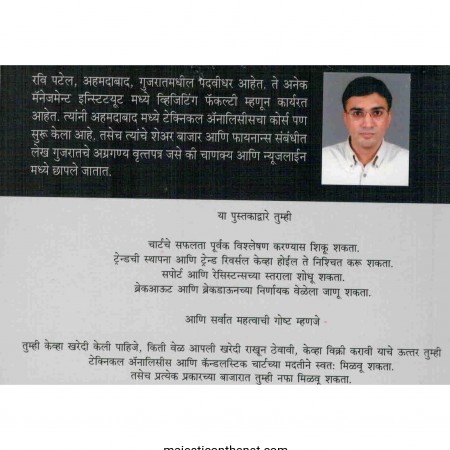 रवि पटेल, अहमदाबाद, गुजरातमधील पदवीधर आहेत. ते अनेक
मॅनेजमेन्ट इन्स्टिटयूट मध्ये व्हिजिटिंग फॅकल्टी म्हणून कार्यरत
आहेत. त्यांनी अहमदाबाद मध्ये टेक्निकल ॲनालिसीसचा कोर्स पण
सुरू केला आहे. तसेच त्यांचे शेअर बाजार आणि फायनान्स संबंधीत
लेख गुजरातचे अग्रगण्य वृत्तपत्र जसे की चाणक्य आणि न्यूजलाईन
मध्ये छापले जातात.
या पुस्तकाद्वारे तुम्ही
चार्टचे सफलता पूर्वक विश्लेषण करण्यास शिकू शकता.
ट्रेन्डची स्थापना आणि ट्रेन्ड रिवर्सल केव्हा होईल ते निश्चित करू शकता.
सपोर्ट आणि रेसिस्टन्सच्या स्तराला शोधू शकता.
ब्रेकआऊट आणि ब्रेकडाऊनच्या निर्णायक वेळेला जाणू शकता.
आणि सर्वात महत्वाची गोष्ट म्हणजे -
तुम्ही केव्हा खरेदी केली पाहिजे, किती वेळ आपली खरेदी राखून ठेवावी, केव्हा विक्री करावी याचे ऊत्तर तुम्ही
टेक्निकल ॲनालिसीस आणि कॅन्डलस्टिक चार्टच्या मदतीने स्वत: मिळवू शकता.
तसेच प्रत्येक प्रकारच्या बाजारात तुम्ही नफा मिळवू शकता.
majesticonthenet.com